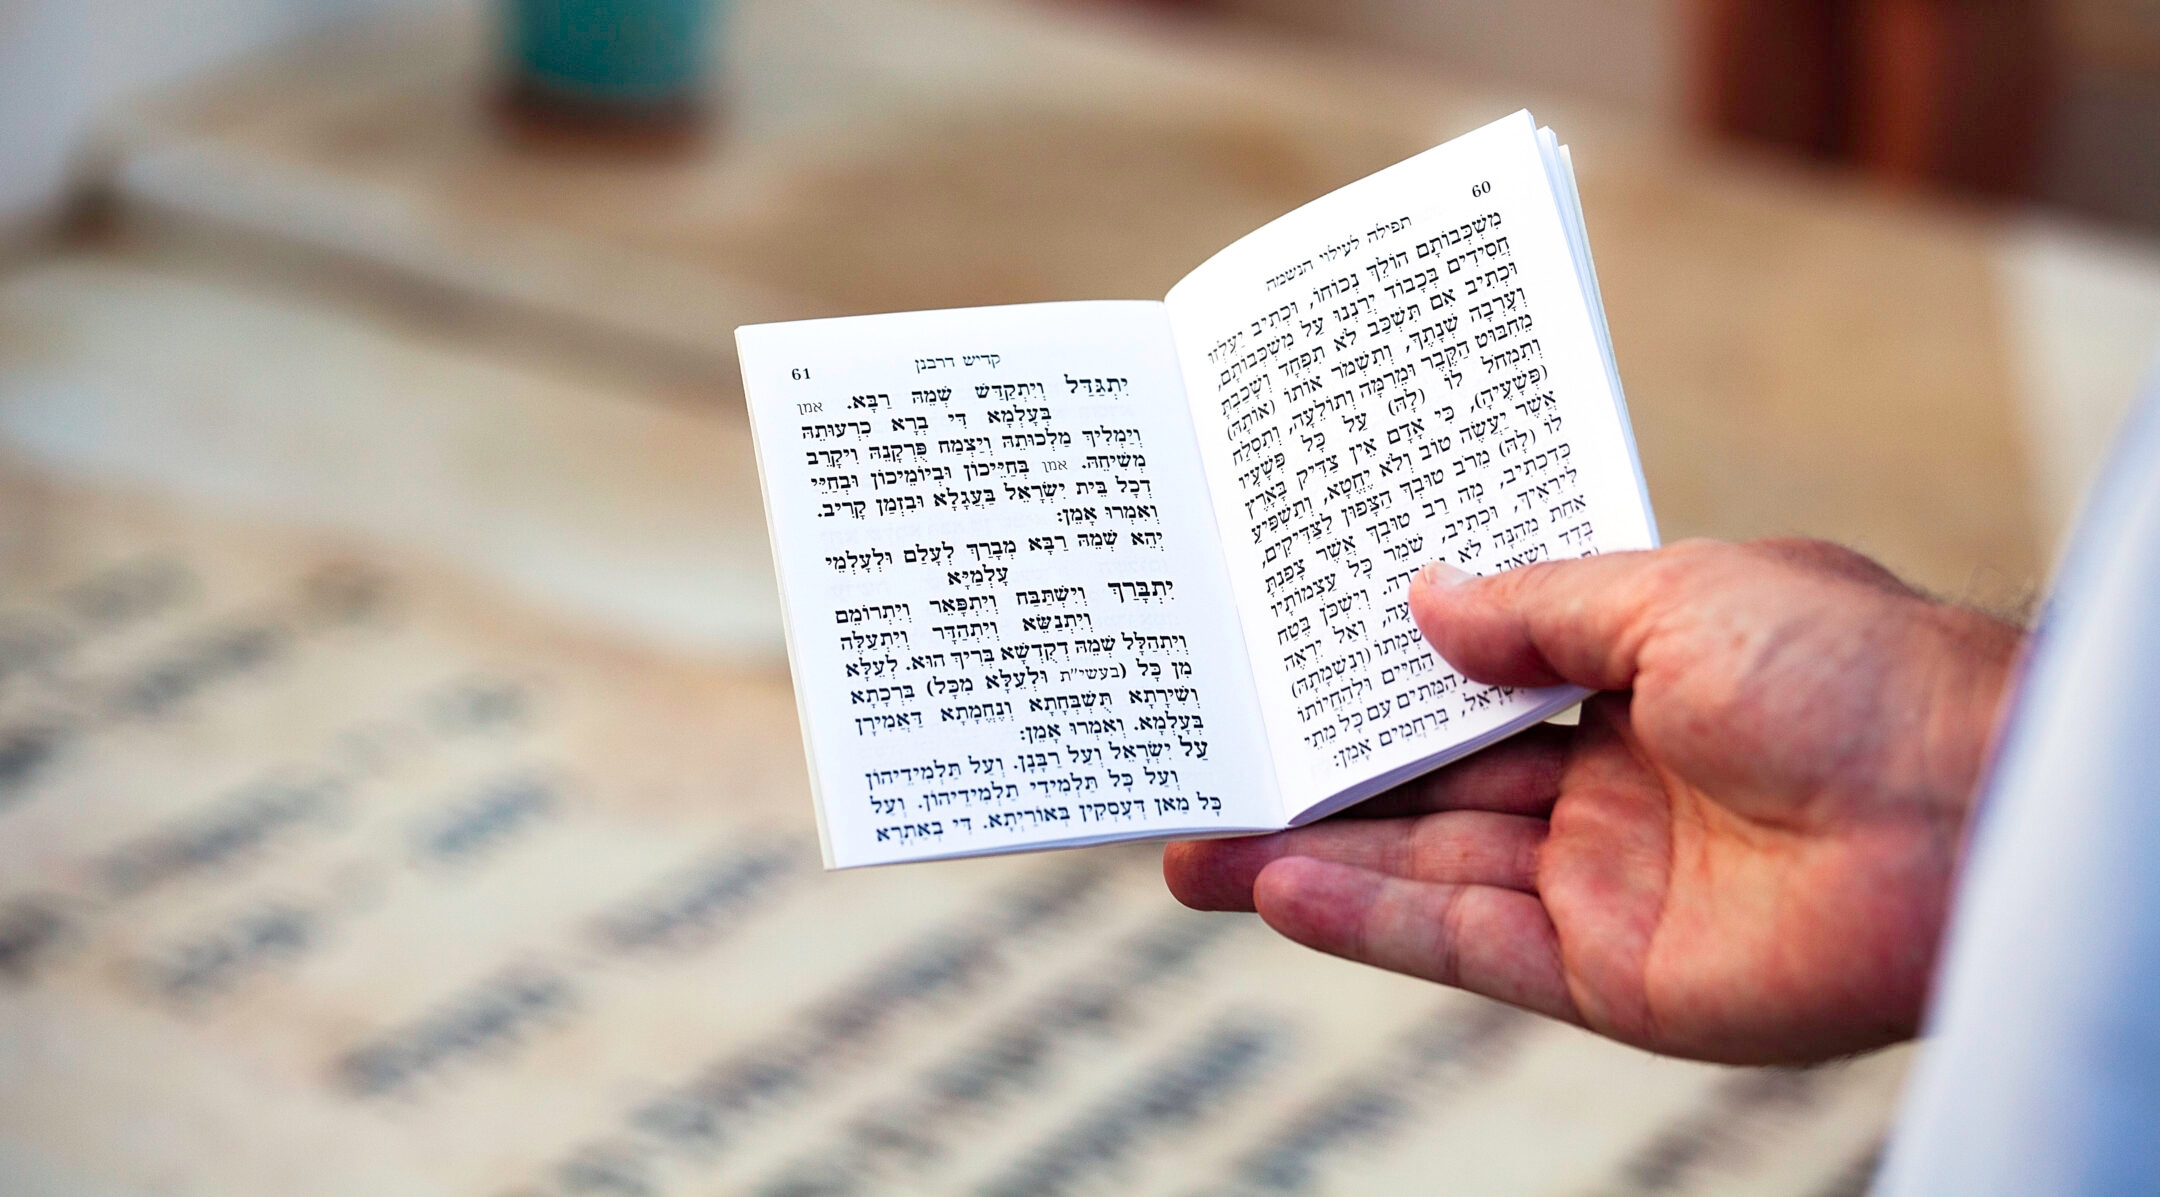 60
תפילה לעילוי הנשמה
מִשְׁכְּבוֹתָם הוֹלֵךְ נְכוֹחוֹ, וּכְתִיב יַעְלְזוּ
חֲסִידִים בְּכָבוֹד יְרַנְּנוּ עַל מִשְׁכְּבוֹתָם,
וּכְתִיב אִם תִּשְׁכַּב לֹא תִפְחָד וְשָׁכַבְתָּ
וְעָרְבָה שְׁנָתֶךָ, וְתִשְׁמֹר אוֹתוֹ (אוֹתָהּ)
מֵחִבּוּט הַקֶּבֶר וּמֵרִמָּה וְתוֹלֵעָה, וְתִסְלַח
וְתִמְחֹל לוֹ (לָהּ) עַל כָּל פְּשָׁעָיו
(פְּשָׁעֶיהָ), כִּי אָדָם אֵין צַדִּיק בָּאָרֶץ
אֲשֶׁר יַעֲשֶׂה טוֹב וְלֹא יֶחֱטָא, וְתַשְׁפִּיעַ
לוֹ (לָהּ) מֵרֹב טוּבְךָ הַצָּפוּן לַצַּדִּיקִים,
כְּדִכְתִיב, מָה רַב טוּבְךָ אֲשֶׁר צָפַנְתָּ
לִּירֵאֶיךָ, וּכְתִיב, שֹׁמֵר כָּל עַצְמוֹתָיו
אַחַת מֵהֵנָּה לֹא נִשְׁבָּרָה. וְיִשְׁכֹּן בֶּטַח
בָּדָד וְשַׁאֲנָן וְאַל יִרְאֶה
(וְנִשְׁמָתָהּ)
הַחַיִּים וּלְהַחֲיוֹתוֹ
הַמֵּתִים עִם כָּל מֵתֵי
בְּרַחֲמִים אָמֵן:
61
קדיש דרבנן
יִתְגַּדַּל וְיִתְקַדַּשׁ שְׁמֵהּ רַבָּא. אמן
בְּעָלְמָא דִּי בְרָא כִרְעוּתֵהּ
וְיַמְלִיךְ מַלְכוּתֵהּ וְיַצְמַח פֻּרְקָנֵהּ וִיקָרֵב
מְשִׁיחֵהּ. אמן בְּחַיֵּיכוֹן וּבְיוֹמֵיכוֹן וּבְחַיֵּי
דְכָל בֵּית יִשְׂרָאֵל בַּעֲגָלָא וּבִזְמַן קָרִיב.
וְאִמְרוּ אָמֵן:
יְהֵא שְׁמֵהּ רַבָּא מְבָרַךְ לְעָלַם וּלְעָלְמֵי
עָלְמַיָּא
יִתְבָּרַךְ וְיִשְׁתַּבַּח וְיִתְפָּאֵר וְיִתְרוֹמֵם
וְיִתְנַשֵּׂא וְיִתְהַדָּר וְיִתְעַלֶּה
וְיִתְהַלָּל שְׁמֵהּ דְקֻדְשָׁא בְּרִיךְ הוּא. לְעֵלָּא
מִן כָּל (בעשי״ת וּלְעֵלָּא מִכָּל) בִּרְכָתָא
וְשִׁירָתָא תֻּשְׁבְּחָתָא וְנֶחֱמָתָא דַּאֲמִירָן
בְּעָלְמָא. וְאִמְרוּ אָמֵן:
עַל יִשְׂרָאֵל וְעַל רַבָּנָן. וְעַל תַּלְמִידֵיהוֹן
וְעַל כָּל תַּלְמִידֵי תַלְמִידֵיהוֹן. וְעַל
כָּל מַאן דְּעָסְקִין בְּאוֹרַיְתָא. דִּי בְאַתְרָא